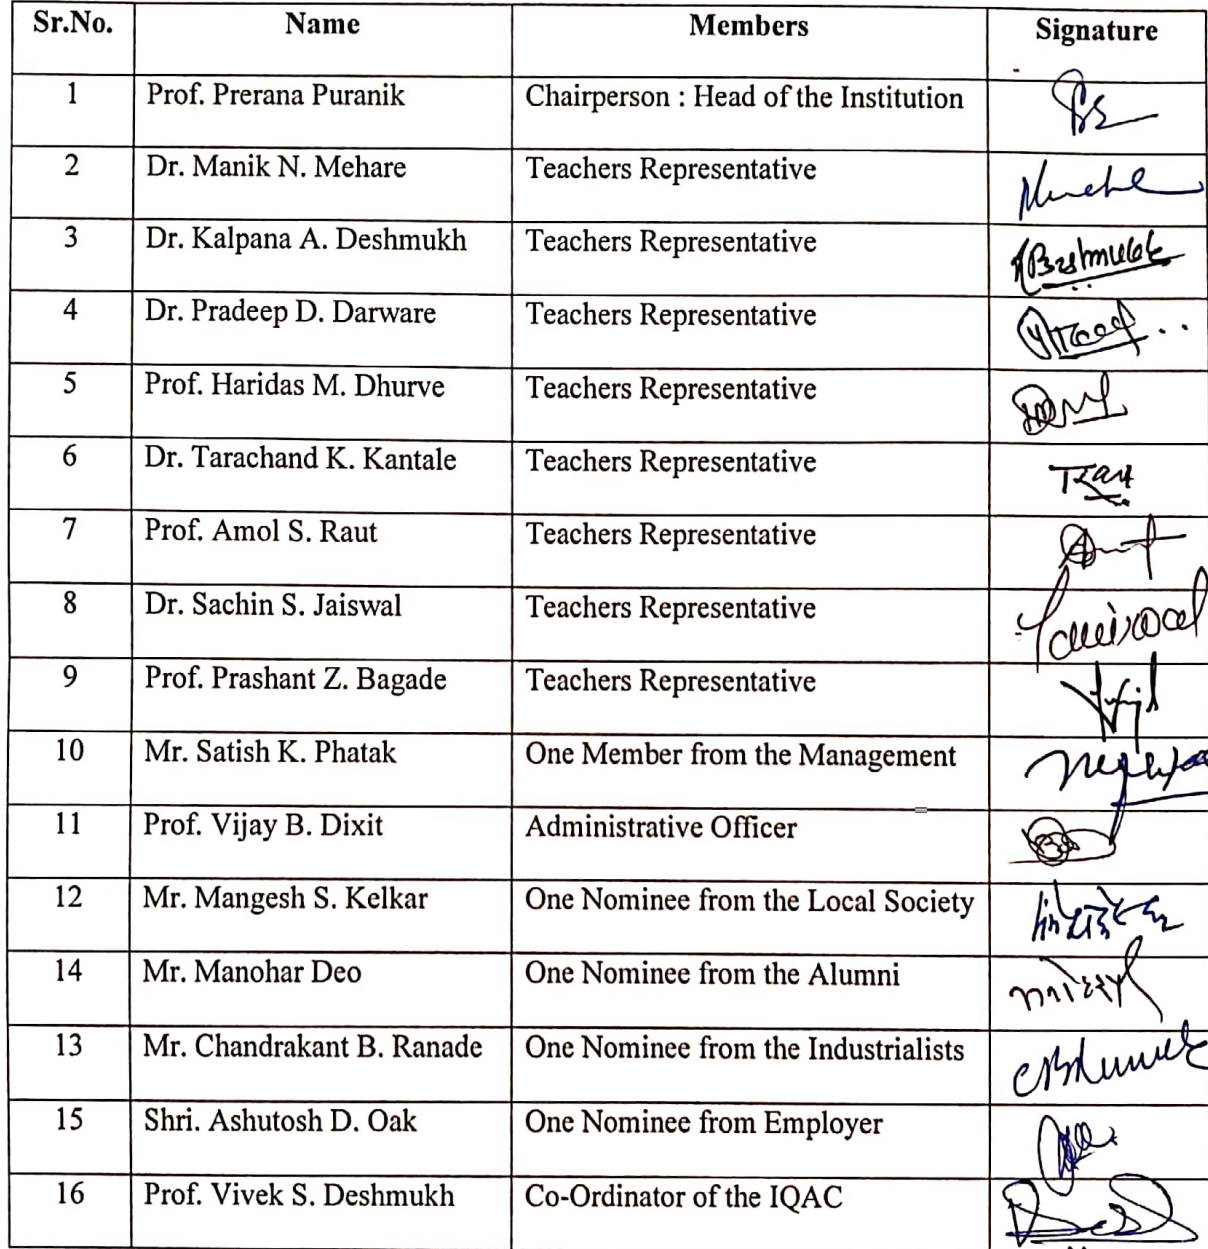 Sr.No. Name Members Signature
1 Prof. Prerana Puranik Chairperson : Head of the Institution
2 Dr. Manik N. Mehare Teachers Representative
3 Dr. Kalpana A. Deshmukh Teachers Representative
4 Dr. Pradeep D. Darware Teachers Representative
5 Prof. Haridas M. Dhurve Teachers Representative
6 Dr. Tarachand K. Kantale Teachers Representative
7 Prof. Amol S. Raut Teachers Representative
8 Dr. Sachin S. Jaiswal Teachers Representative
9 Prof. Prashant Z. Bagade Teachers Representative
10 Mr. Satish K. Phatak One Member from the Management
11 Prof. Vijay B. Dixit Administrative Officer
12 Mr. Mangesh S. Kelkar One Nominee from the Local Society
14 Mr. Manohar Deo One Nominee from the Alumni
13 Mr. Chandrakant B. Ranade One Nominee from the Industrialists
15 Shri. Ashutosh D. Oak One Nominee from Employer
16 Prof. Vivek S. Deshmukh Co-Ordinator of the IQAC